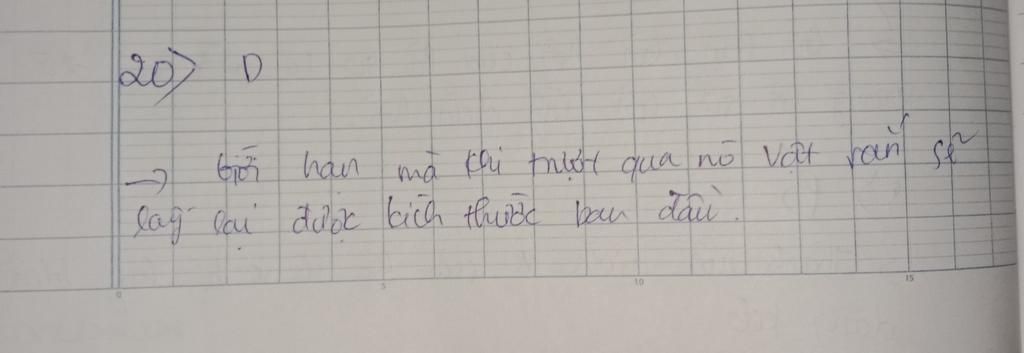 20> D
→ giới hạn mà khi vượt qua nó vật rắn sẽ
lấy lại được kích thước ban đầu.
0 5 10 15